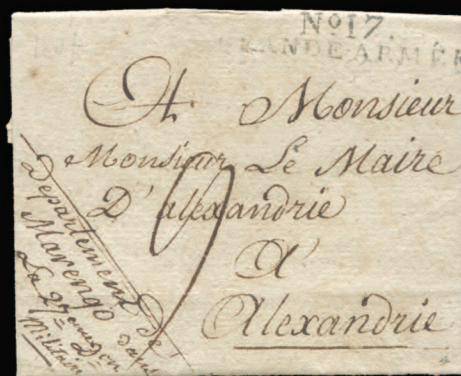 No 17.
GRANDE ARMÉE
A Monsieur
Monsieur Le Maire
D'alexandrie
A
Alexandrie
Departement de
Marengo
La 27e dans
Militair